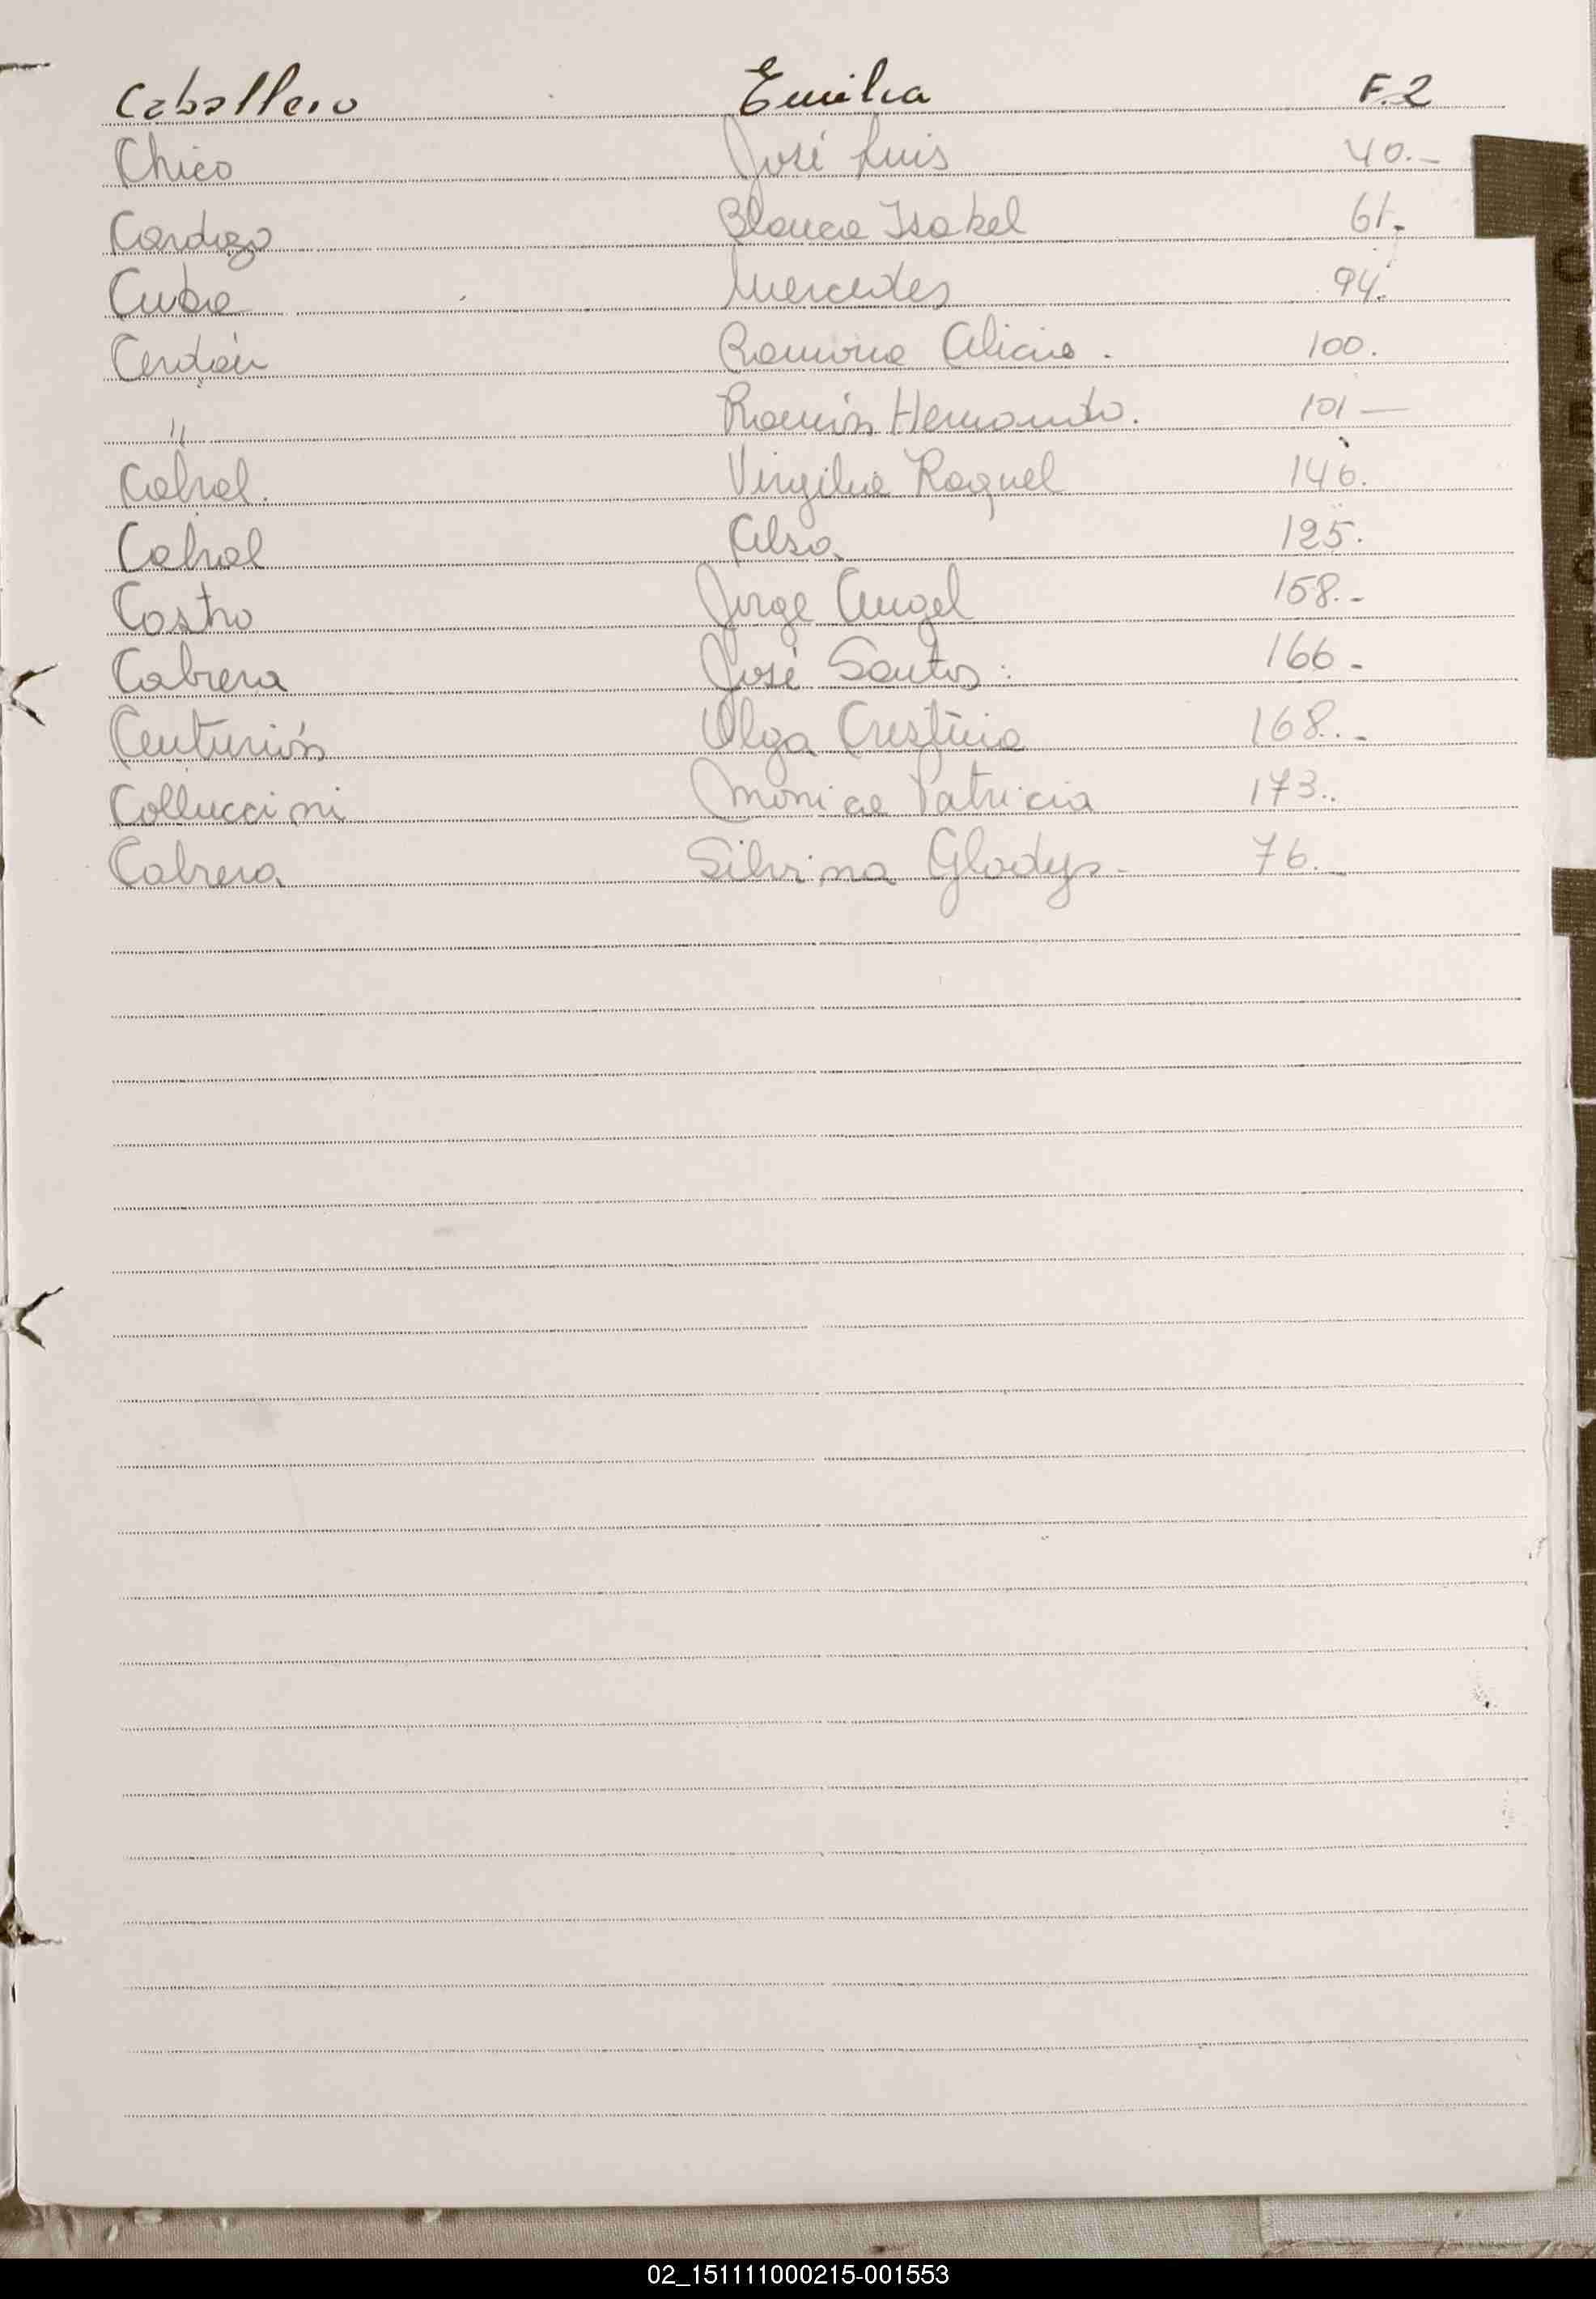 Caballero Emilia F.2
Chico José Luis 40.-
Cardozo Blanca Isabel 61.-
Cuba Mercedes 94.
Cerdán Ramona Alicia. 100.
" Ramón Hernando. 101 —
Cabral. Virgilia Raquel 146.
Cabral Elsa 125.
Castro Jorge Angel 158.-
Cabrera José Santos. 166-
Centurión Olga Cristina 168.-
Colluccini Monica Patricia 173.
Cabrera Silvina Gladys- 76.-
02_151111000215-001553